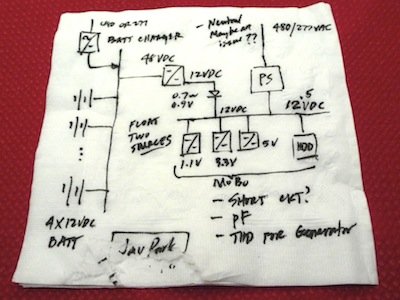 480 OR 277
BATT CHARGER
- Neutral
Maybe an
issue ??
480/277VAC
48VDC
12VDC
PS
0.7 or
0.4V
12VDC
12.5VDC
FLOAT
TWO
SOURCES
1.1V
3.3V
5V
HDD
MoBo
- SHORT CKT?
- PF
- THD FOR Generator
4X12VDC
BATT
Jay Park